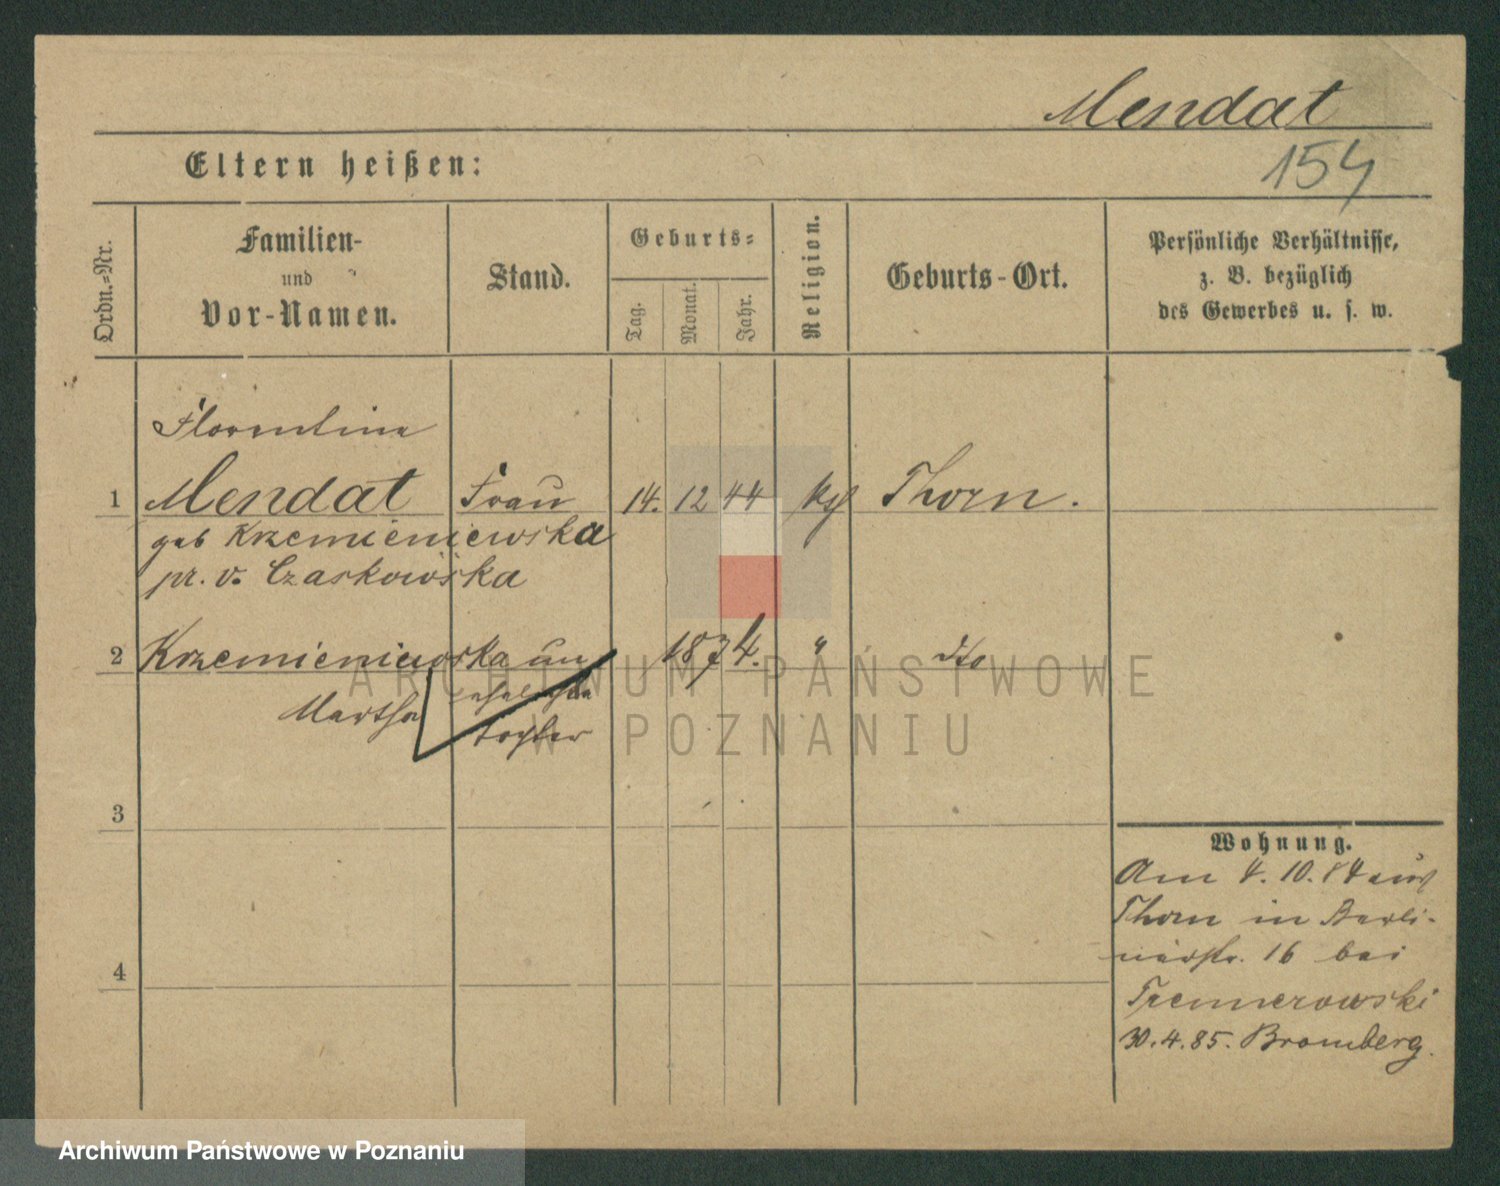 Mendat
Eltern heißen:
154
Ordn.-Nr.
Familien-
und
Vor-Namen.
Stand.
Geburts-
Tag.
Monat.
Jahr.
Religion.
Geburts-Ort.
Persönliche Verhältnisse,
z. B. bezüglich
des Gewerbes u. s. w.
Florentine
1 Mendat Frau 14. 12 44 Thorn.
geb Krzemieniewska
pr. v. Czaskowska
2 Krzemieniewska un 1874. " dto
Martha eheliche
Tochter
3
4
Wohnung.
Am 4. 10. 84 aus
Thorn in Berli-
nerstr. 16 bei
30. 4. 85. Bromberg.
ARCHIWUM PAŃSTWOWE
W POZNANIU
Archiwum Państwowe w Poznaniu